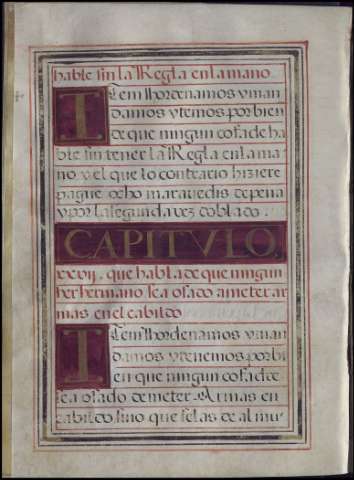 hable sin la Regla en la mano
Item hordenamos y man
damos y tenemos por bien
de que ningun cofade ha
ble sin tener la Regla en la ma
no y el que lo contrario hiziere
pague ocho maravedis de pena
y por la segunda vez doblado.
CAPITVLO,
xxvij. que habla de que ningun
her hermano sea osado a meter ar
mas en el cabildo
Item hordenamos y man
damos y tenemos por bi
en que ningun cofade
sea osado de meter. Armas en
cabildo sino que se las de al mu-